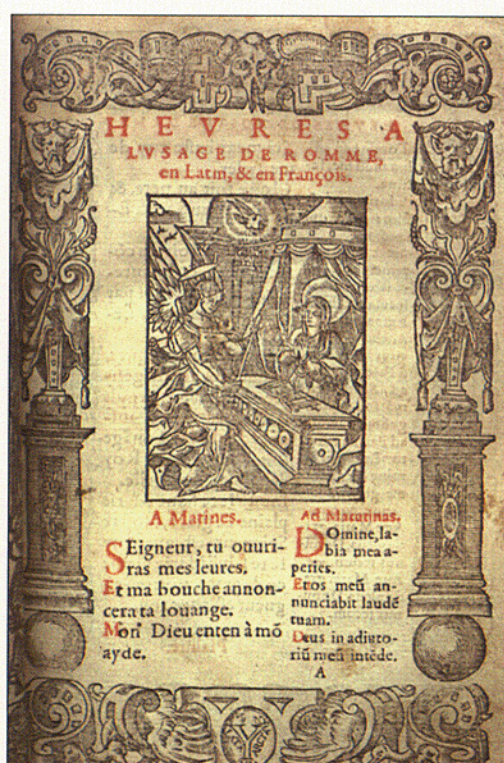 HEVRES A
L'VSAGE DE ROMME,
en Latin, & en François.
A Matines.
SEigneur, tu ouuri-
ras mes leures.
Et ma bouche annon-
cera ta louange.
Mon Dieu enten à mō
ayde.
Ad Matutinas.
DOmine, la-
bia mea a-
peries.
Et os meū an-
nunciabit laudē
tuam.
Deus in adiuto-
riū meū intēde.
A